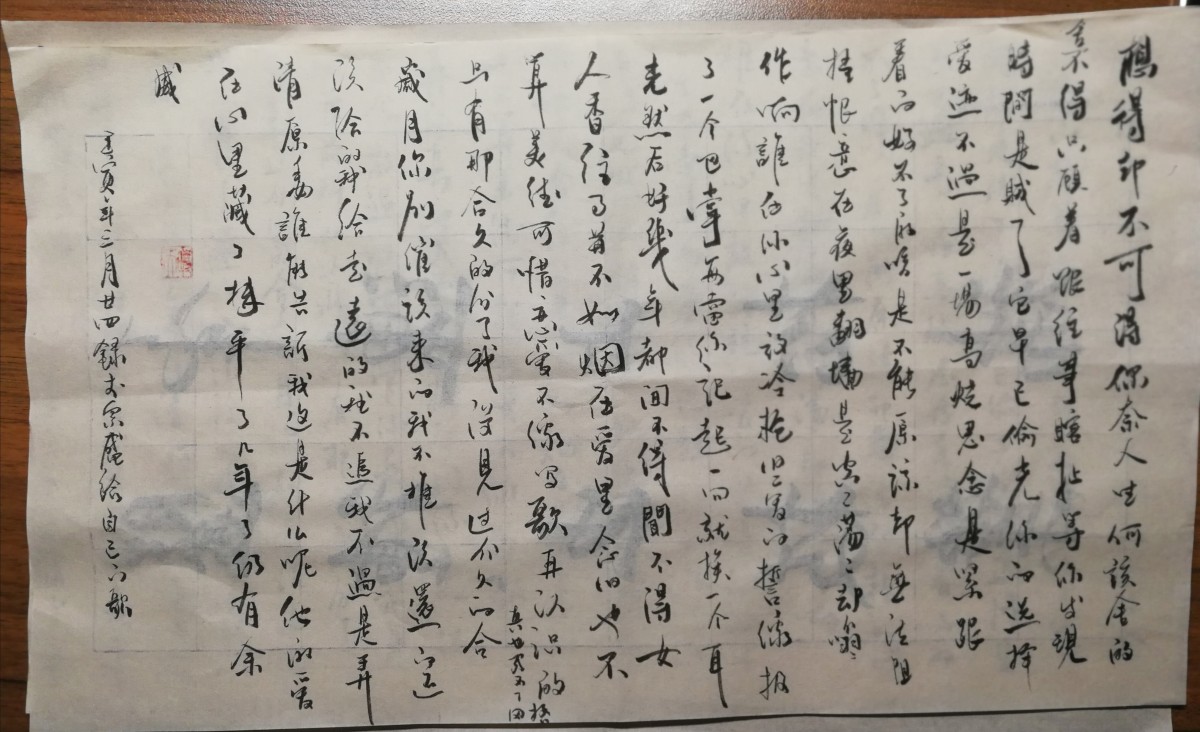 想得却不可得你奈人生何該舍的
舍不得只顧着跟往事瞎扯等你发現
時間是賊了它早已偷光你的选择
爱恋不過是一場高烧思念是紧跟
着的好不了的咳是不能原谅却無法阻
擋恨意在夜里翻墙是空々荡々却嗡々
作响誰在你心里放冷枪旧爱的誓像极
了一个巴掌每當你记起一句就挨一个耳
光然后好幾年都闻不得聞不得女
人香往事并不如烟在爱里念旧也不
算美德可惜恋爱不像写歌再认识的
只有那合久的分了我没見过分久的合
歲月你别催该来的我不推该還的还
该给的我给走遠的我不追我不過是弄
清原委誰能告訴我这是什么呢他的爱
在心里葬了抹平了几年了仍有余
威
壬寅年三月廿四錄李宗盛给自己的歌